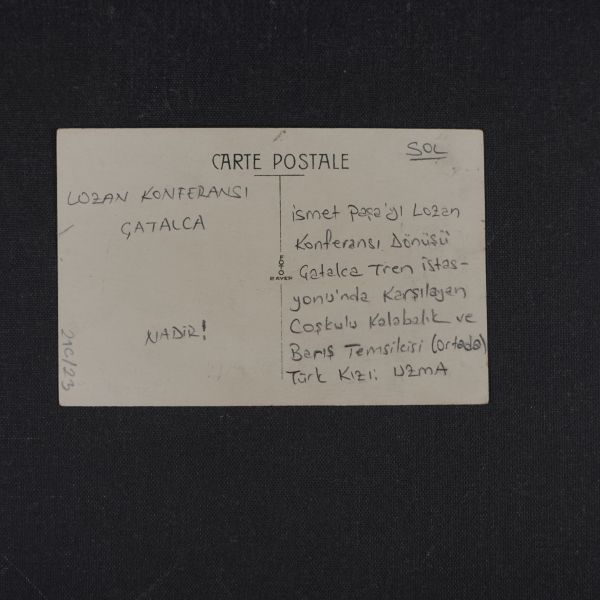 CARTE POSTALE
SOL
LOZAN KONFERANSI
ÇATALCA
NADİR!
216/23
FOTO
İsmet Paşa'yı Lozan
Konferansı Dönüşü
Çatalca Tren İstas-
yonu'nda Karşılayan
Coşkulu Kalabalık ve
Barış Temsilcisi (ortada)
Türk Kızı: UZMA